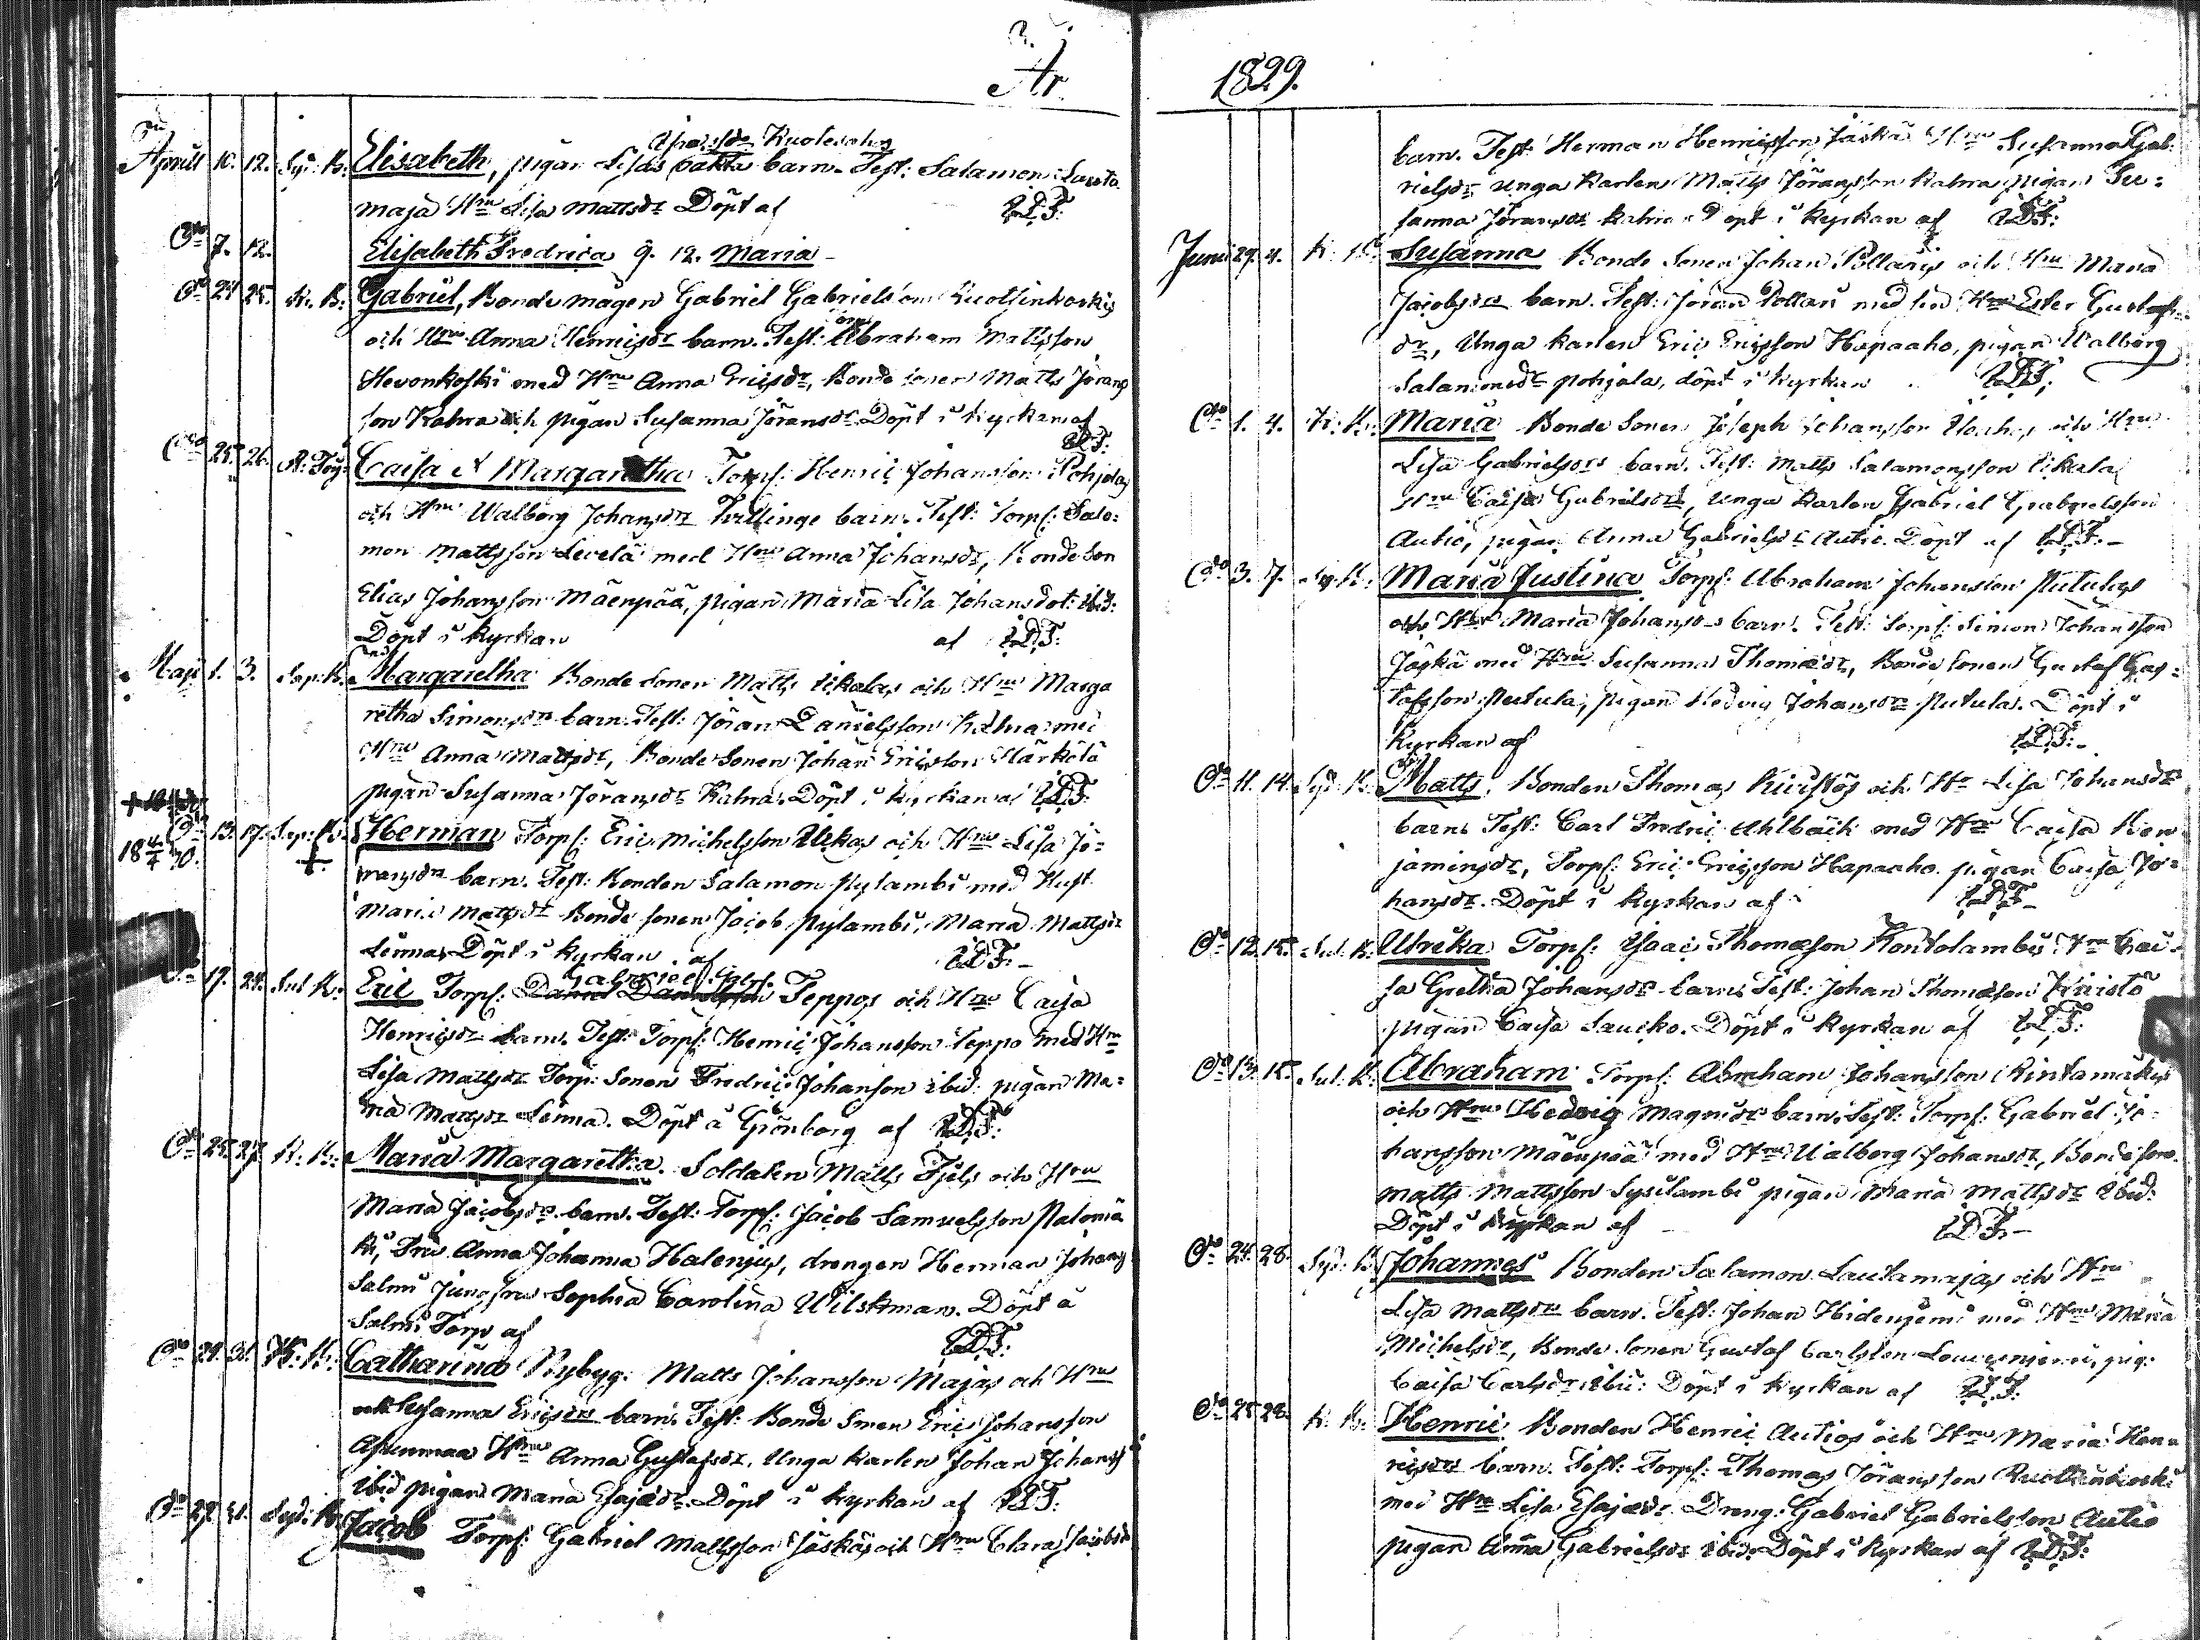 År
1829.
Kuolesahos
April 10. 12. Syd. K. Elisabeth, pigan Lisas barn. Test: Salamon Lauta
maja Hru Lisa Mattsdr Döpt af
Do 7. 12. Elisabeth Fredrica g. 12. Maria
Do 24 25. K. B: Gabriel, Bonde mågen Gabriel Gabrielsons
och Hru Anna Henricsdr barn. Test: Abraham Mattsson
Hevonkoski med Hru Anna Ericsdr, Bonde sonen Matts Jörans
son Kahra och pigan Susanna Jöransdr Döpt i kyrkan af
Do 25. 26. Caisa & Margaretha Torpf: Henric Johansson Pohjolas
och Hru Walborg Johansdr Tvillinge barn. Test: Torpf: Salo:
mon Mattsson Levelä med Hru Anna Johansdr, Bonde son
Elias Johansson Mäenpää, pigan Maria Lisa Johansdot: ibid:
Döpt i kyrkan af
Maji 1. 3. Margaretha Bonde sonen Matts och Hru Marga
retha Simonsdr barn. Test: Jöran Danielsson Kahra med
Hru Anna Mattsdr, Bonde sonen Johan Ericsson Härkölä
pigan Susanna Jöransdr Kahra. Döpt i kyrkan af
Do 13. 17. Herman Torpf: Eric Michelsson och Hru Lisa Jö:
18 4/4 30. ransdr barn. Test: Bonden Salamon Nylambi med Hust
Maria Mattsdr Bonde sonen Jacob Nylambi, Maria Mattsdr
Leinnas Döpt i kyrkan af
Gabriel Gabrs.
Do 19. 24. Sul K: Eric Torpf: Daniel Danielsson Seppos och Hru Caisa
Henricsdr barn. Test: Torpf: Henric Johansson Seppo med Hru
Lisa Mattsdr Torp: sonen Fredric Johanson ibid: pigan Ma:
ria Mattsdr Leinna. Döpt å Grönborg af
Do 25. 27. K. K: Maria Margaretha. Soldaten Matts Fjels och Hru
Maria Jacobsdr barn. Test: Torpf: Jacob Samuelsson Palomä
ki, Fru Anna Johanna Halenius, drengen Herman Johans
Salmi Jungfru Sophia Carolina Wilskman. Döpt å
Salmi Torp af
Do 29. 31. K: K: Catharina Nybyg: Matts Johansson Majas och Hru
Susanna Ericsdr barn. Test: Bonde sonen Eric Johansson
Asunmaa Hru Anna Gustafsdr. Unga karlen Johan Johans
ibid pigan Maria Esajædr. Döpt i kyrkan af
Do 29 31. Syd: K. Jacob Torpf: Gabriel Mattsson Jäskäs och Hru Clara Jacobsdr
barn. Test: Herman Henricsson Jäskä Hru Susanna Gab:
rielsdr unga Karlen Matts Jöransson Kahra pigan Su:
sanna Jöransdr Kahra Döpt i kyrkan af
Juni 29. 4. K. K. Susanna Bonde sonen Johan Pollaris och Hru Maria
Jacobsdrs barn. Test: Jöran Pollari med sin Hru Ester Gustafs
dr, Unga karlen Eric Ericsson Hapaaho, pigan Walborg
Salamonsdr Pohjala, döpt i kyrkan
Do 1. 4. K: K: Maria Bonde sonen Joseph Johansson och Hru
Lisa Gabrielsdrs barn. Test: Matts Salamonsson
Hru Caisa Gabrielsdr, unga karlen Gabriel Gabrielsson
Autio, pigan Anna Gabrielsdr Autio. Döpt af
Do 3. 7. Maria Justina Torpf: Abraham Johansson Putulas
och Hru Maria Johansdrs barn. Test: Torpf: Simon Johansson
Jäskä med Hru Susanna Thomædr, Bonde sonen Gustaf Gus:
tafsson Putula, pigan Hedvig Johansdr Putula. Döpt i
kyrkan af
Do 11. 14. Syd. K. Matts. Bonden Thomas Kivistös och Hu Lisa Johansdrs
barn. Test: Carl Fredric Ahlbäck med Hru Caisa Ben
jaminsdr, Torpf: Eric Ericsson Hapaaho. pigan Caisa Jo:
hansdr. Döpt i kyrkan af
Do 12. 15. Sul. K: Ulrika Torpf: Isaac Thomæson Kontolambis Hru Cai:
sa Gretha Johansdr barn. Test: Johan Thomæson
pigan Caisa Saucko. Döpt i kyrkan af
Do 13. 15. Sul: K: Abraham Torpf: Abraham Johansson Rintamäkis
och Hru Hedvig Magnidr barn. Test: Torpf: Gabriel Jo
hansson Mäenpää med Hru Walborg Johansdr, Bonde sone
Matts Mattsson Sysilambi pigan Maria Mattsdr ibid:
Döpt i kyrkan af
Do 24. 28. Syd: K Johannes Bonden Salamon Lautamajas och Hru
Lisa Mattsdrs barn. Test: Johan Hidenjemi med Hru Maria
Michelsdr, Bonde sonen Gustaf Carlsson pig:
Caisa Carlsdr ibid: Döpt i kyrkan af
Do 25 28. K. K: Henric Bonden Henric Autios och Hru Maria Hen
ricsdrs barn. Test: Torpf: Thomas Jöransson
med Hru Lisa Esajædr. Dreng: Gabriel Gabrielsson Autio
pigan Anna Gabrielsdr ibid: Döpt i kyrkan af